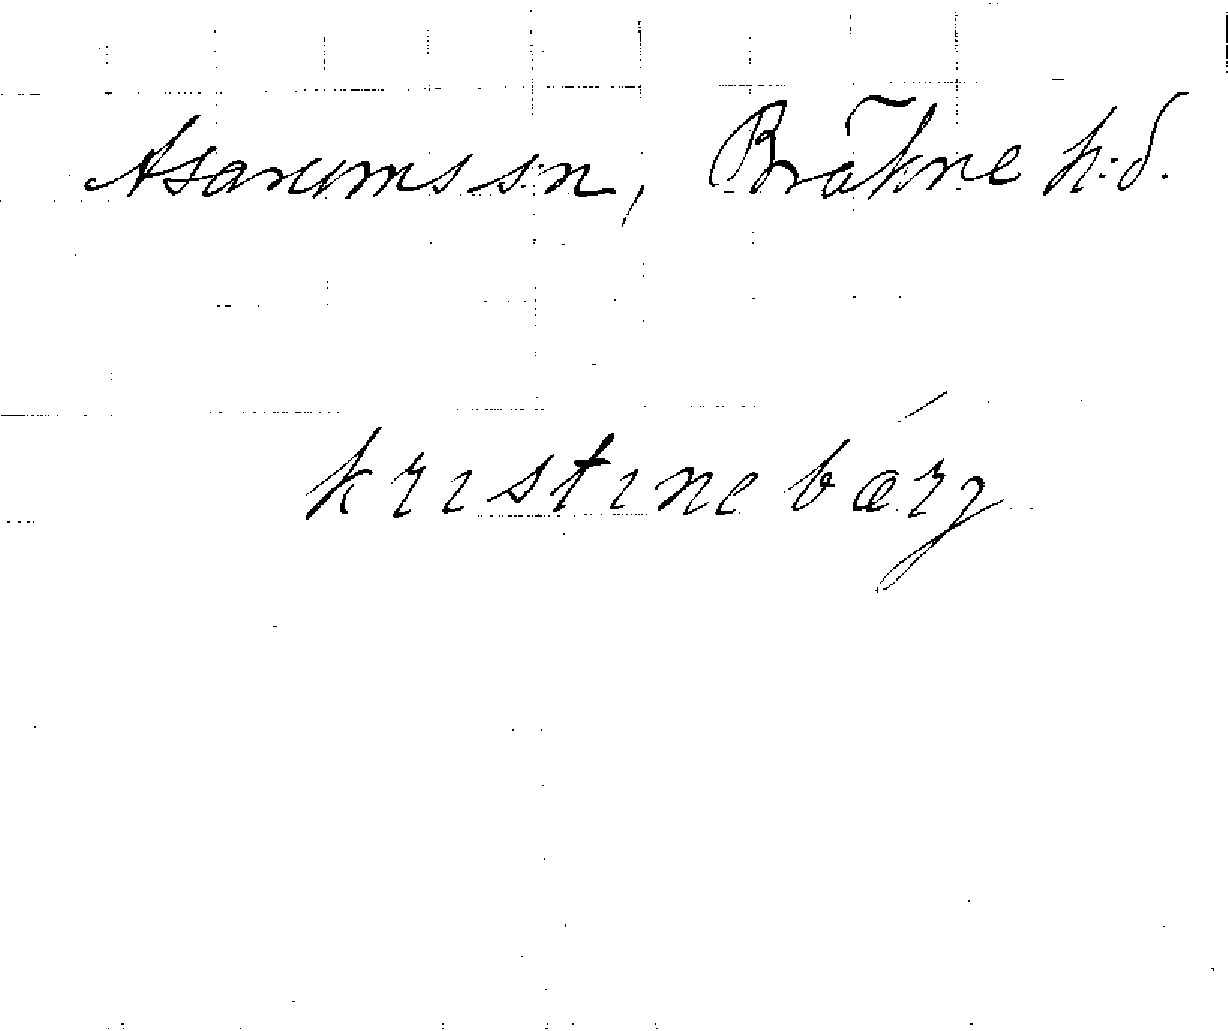 Asarums sn, Bräkne h:d.
kristinebärg